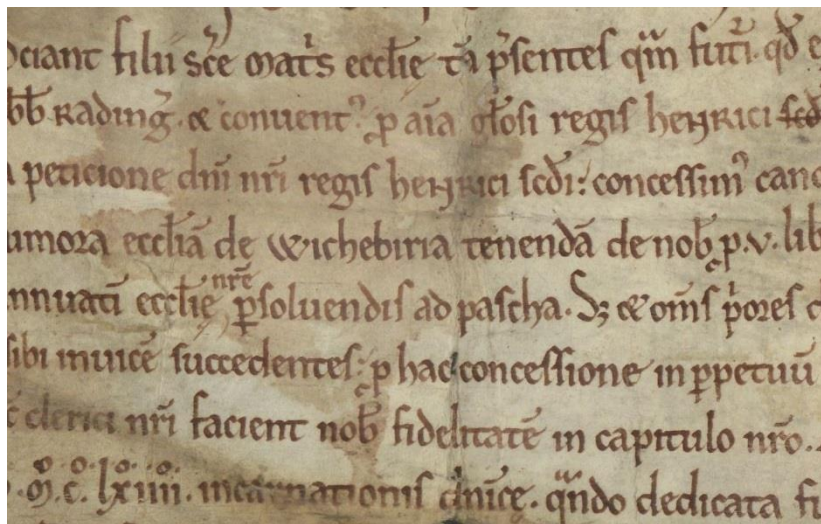 ociant filii sc̄e mat͛s eccl̄ię tā p͛sentes qͣm futi͛. qd̄ e
bb̄ Radinḡ. & conuentꝰ. ꝓ aīa gl̄osi regis henrici scd̄
peticione dn̄i nr̄i regis henrici scd̄i: concessimꝰ canc
umora eccl̄iā de wichebiria tenendā de nob̄ ꝓ .v. lib
nnuatī eccl̄ię nr̄ę ꝑsoluendis ad pascha. Sꝫ & om̄s p͛ores c
sibi inuicē succedentes: ꝓ hac concessione in ꝑpetuū
clerici nr̄i facient nob̄ fidelitatē in capitulo nr̄o..
.ͦM.ͦ c.ͦ lxiiii. incarnationis dn̄icę. qͣndo dedicata fu